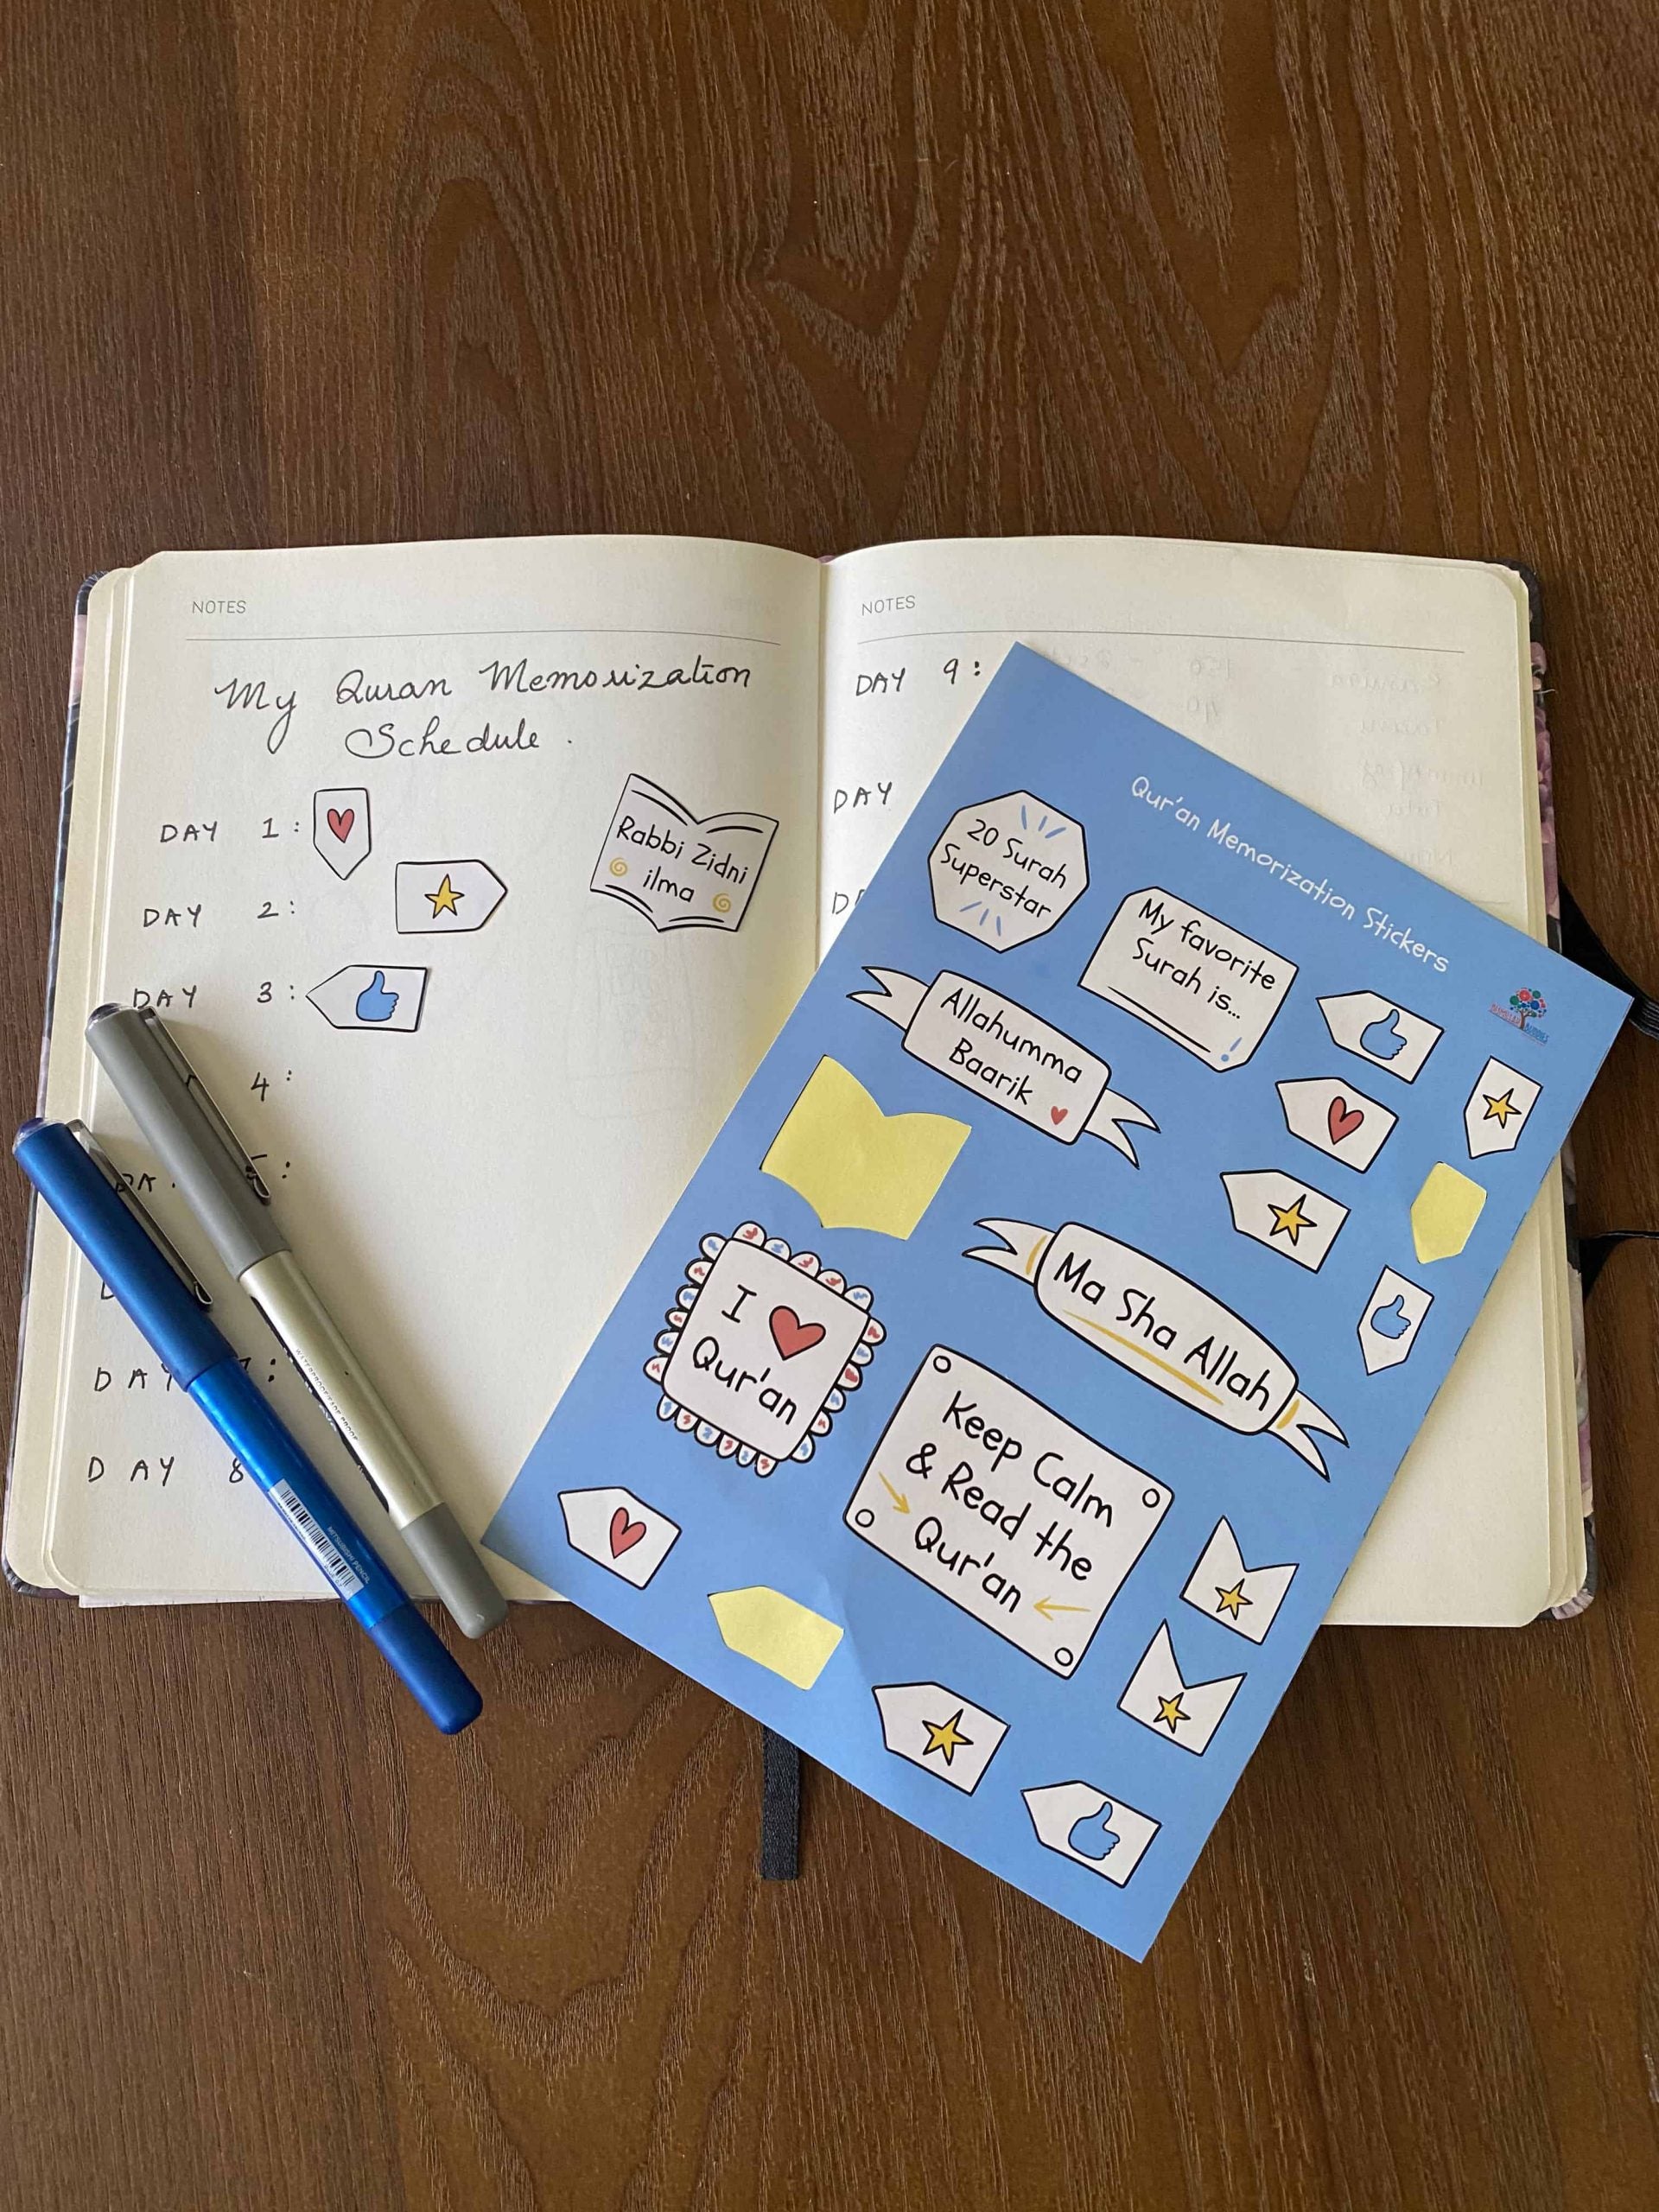 NOTES
My Quran Memorization
Schedule.
DAY 1:
DAY 2:
DAY 3:
4:
5:
DAY 7:
DAY 8
Rabbi Zidni
ilma
NOTES
DAY 9:
DAY
Qur'an Memorization Stickers
20 Surah
Superstar
My favorite
Surah is...
!
Allahumma
Baarik
I ❤ Qur'an
Ma Sha Allah
Keep Calm
& Read the
Qur'an
MITSUBISHI PENCIL